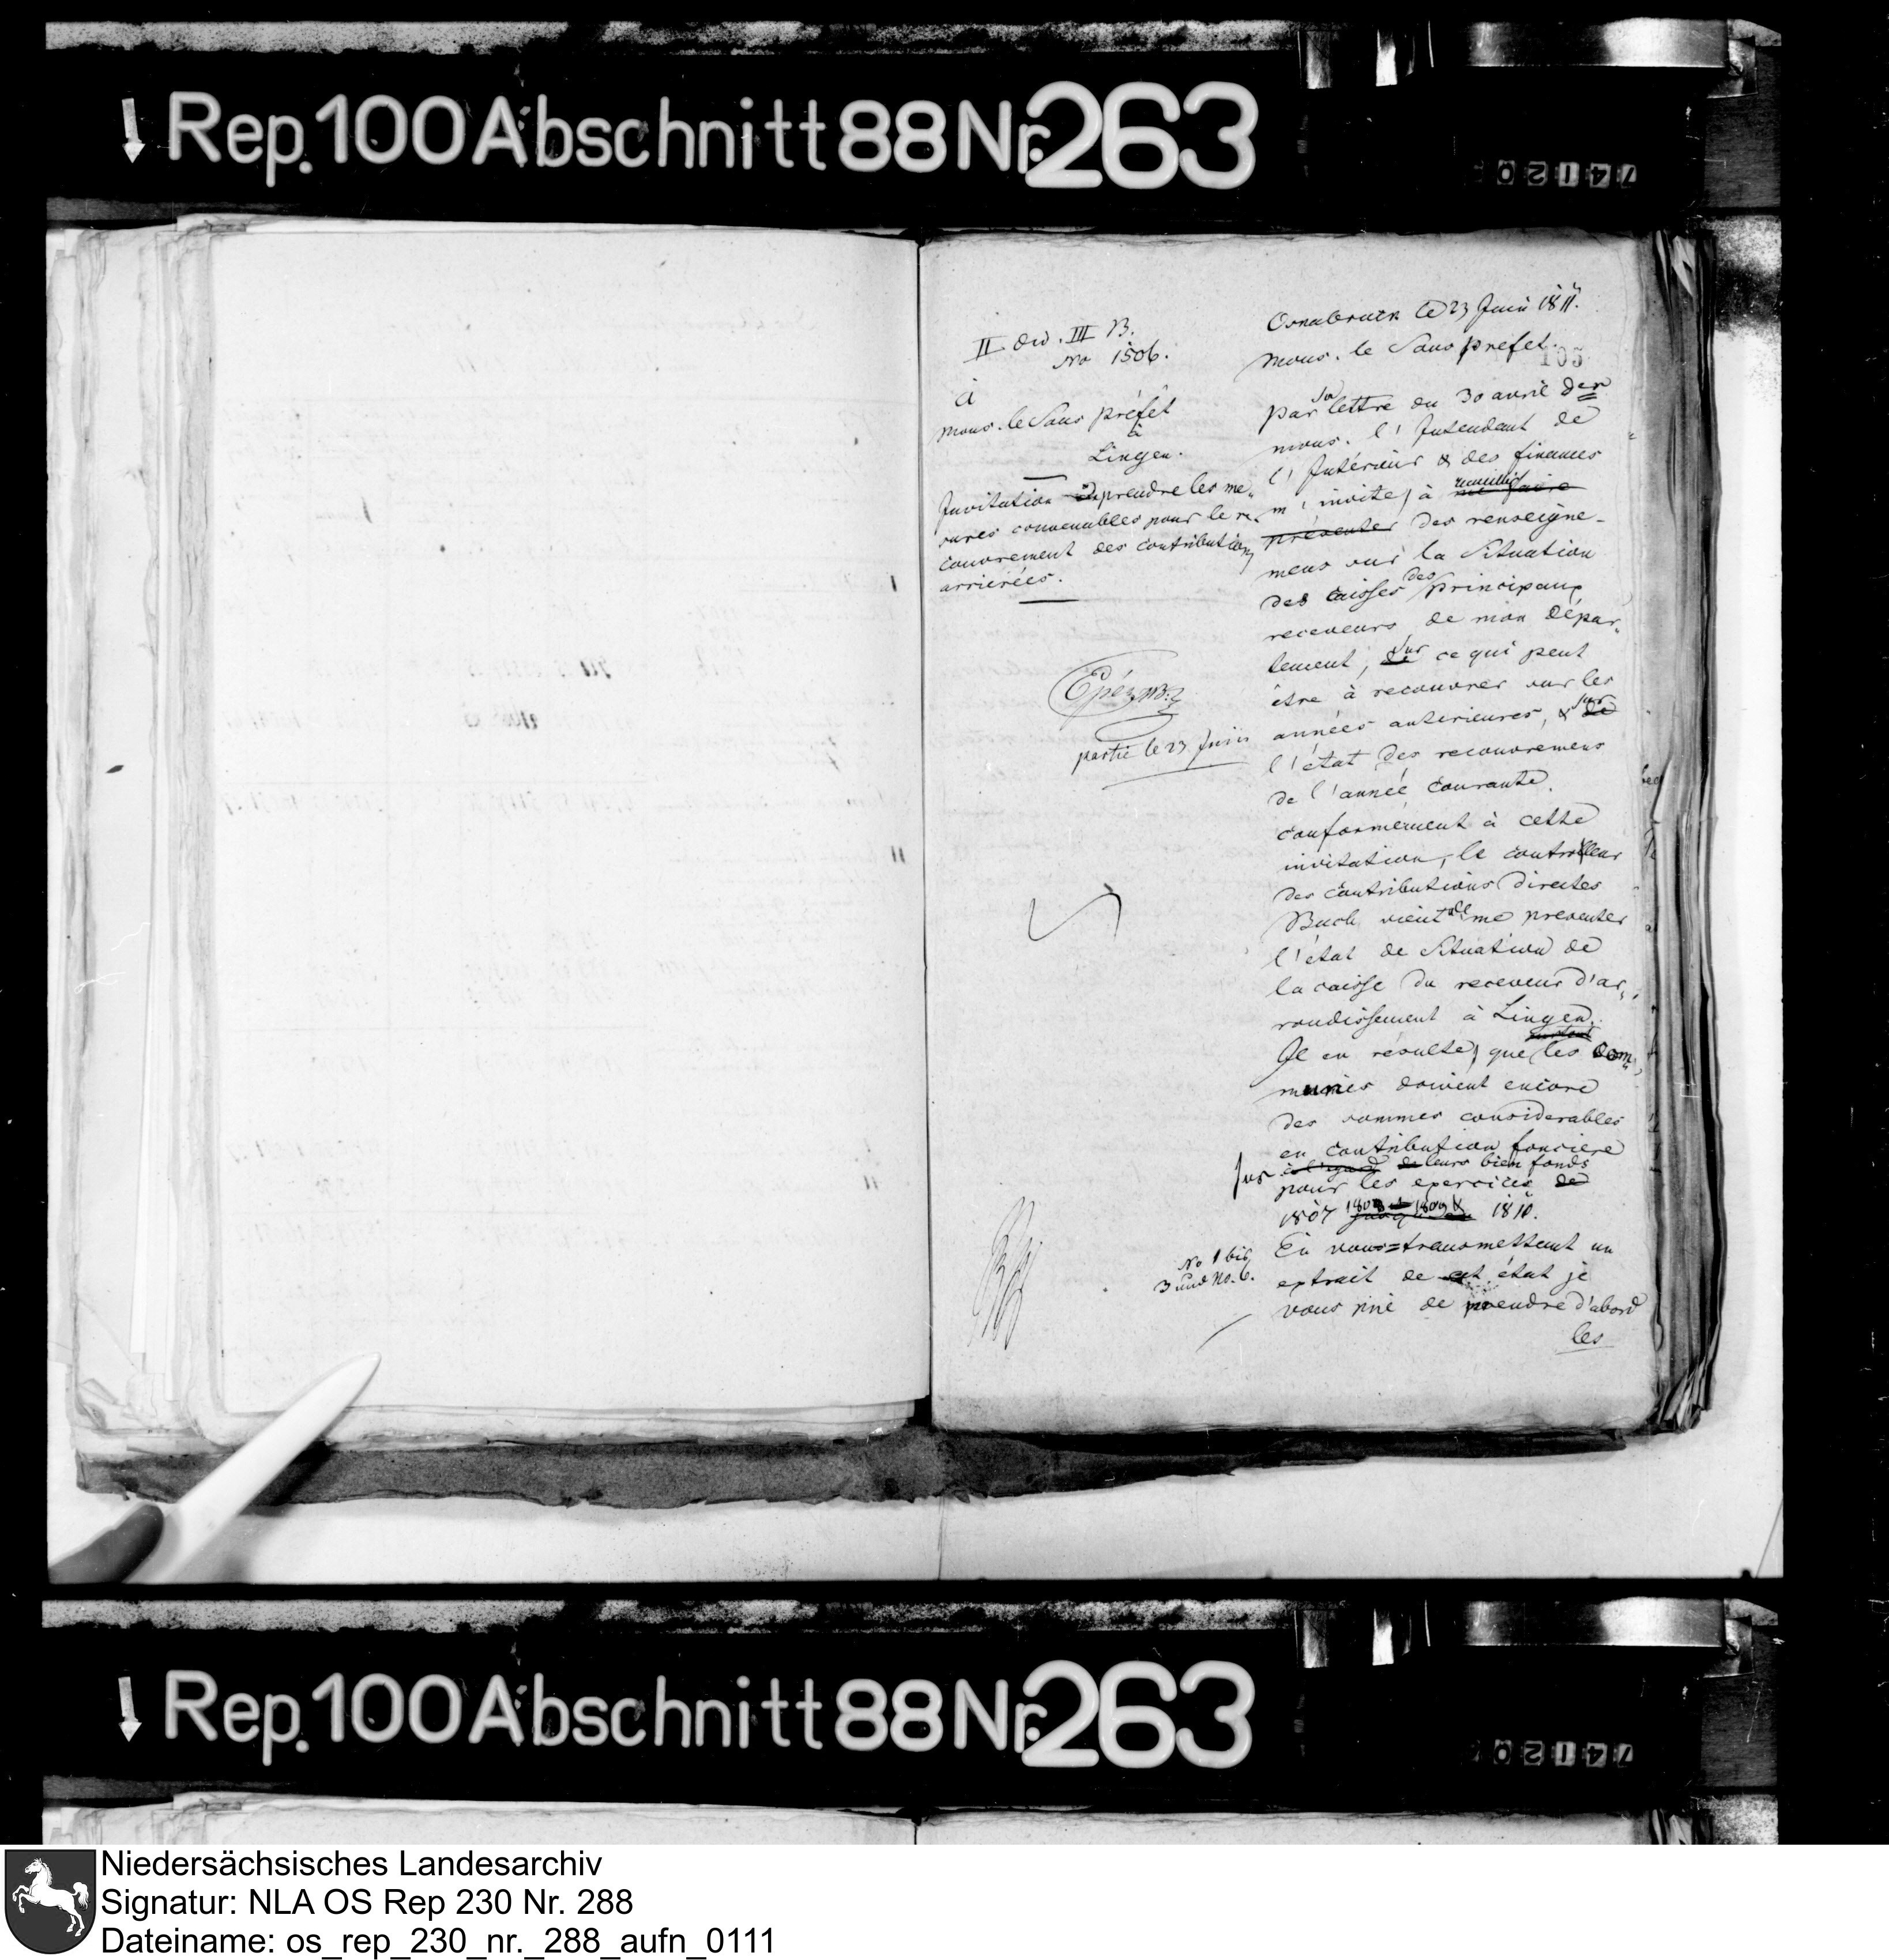 Rep. 100 Abschnitt 88 Nr. 263
II div. III B.
No 1506.
à
Mons. le Sous préfet
à
Lingen.
Invitation à prendre les me„
sures convenables pour le re„
couvrement des contributions
arrierées.
partie le 23 Juin
No 1 bis
3 und No. 6.
Osnabruck le 23 Juin 1811.
Mons. le Sous préfet.
105
par sa lettre du 30 avril der
mons. l'Intendant de
l'Intérieur & des finances
m'invite, à recueillir me faire
présenter des renseigne-
mens sur la Situation
des caisses des principaux
receveurs de mon dépar„
tement, sur ce qui peut
être à recouvrer sur les
années anterieures, & sur de
l'état des recouvremens
de l'année courante.
conformement à cette
invitation, le controlleur
des contributions directes
Buch vient de me presenter
l'état de Situation de
la caisse du receveur d'ar„
rondissement à Lingen.
surtout
Il en résulte, que les com„
munes doivent encore
des sommes considerables
en contribution fonciere
sur à l'egard de leurs bien fonds
pour les exercices de
1807 1808 & 1809 & jusqu'en 1810.
En vous transmettant un
extrait de cet état je
vous prie de prendre d'abord
les
Rep. 100 Abschnitt 88 Nr. 263
Niedersächsisches Landesarchiv
Signatur: NLA OS Rep 230 Nr. 288
Dateiname: os_rep_230_nr._288_aufn_0111